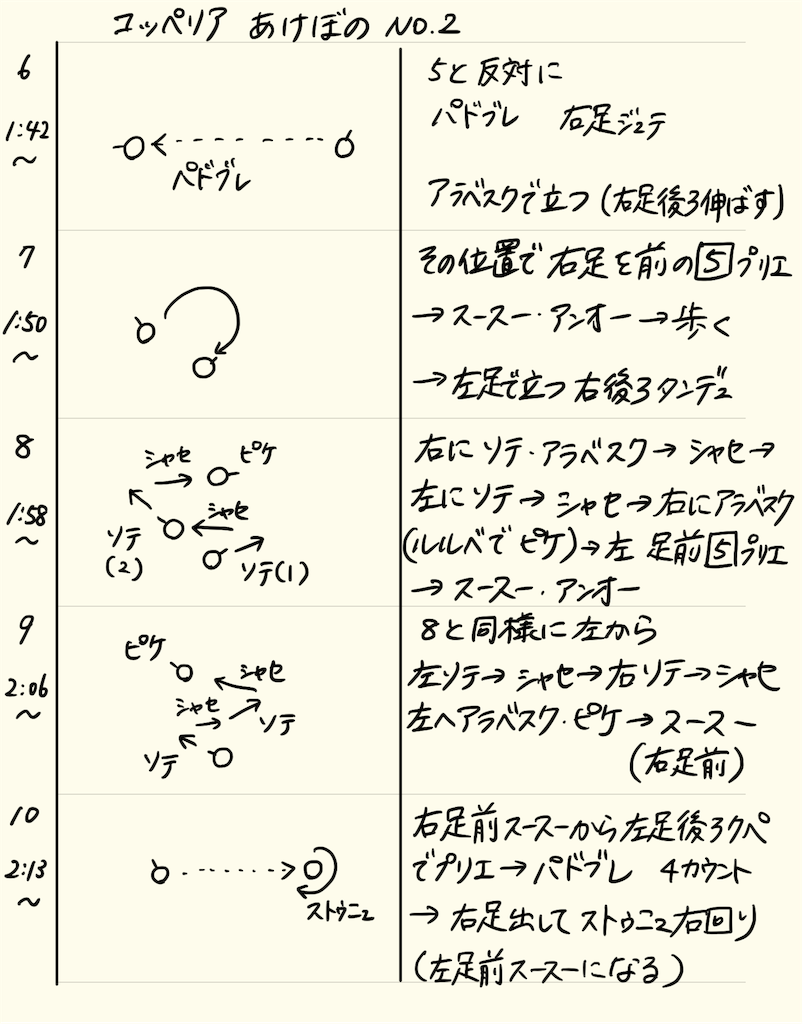 コッペリア あけぼの NO.2
6
1:42
～
パドブレ
5と反対に
パドブレ 右足ジュテ
アラベスクで立つ(右足後ろ伸ばす)
7
1:50
～
その位置で右足を前の5プリエ
→スースー・アンオー→歩く
→左足で立つ右後ろタンデュ
8
1:58
～
シャセ ピケ
シャセ
ソテ
(2)
ソテ(1)
右にソテ・アラベスク→シャセ→
左にソテ→シャセ→右にアラベスク
(ルルベでピケ)→左 足前5プリエ
→スースー・アンオー
9
2:06
～
ピケ
シャセ
シャセ
ソテ
ソテ
8と同様に左から
左ソテ→シャセ→右ソテ→シャセ
左へアラベスク・ピケ→スースー
(右足前)
10
2:13
～
ストゥニュ
右足前スースーから左足後ろクペ
でプリエ→パドブレ 4カウント
→右足出してストゥニュ右回り
(左足前スースーになる)